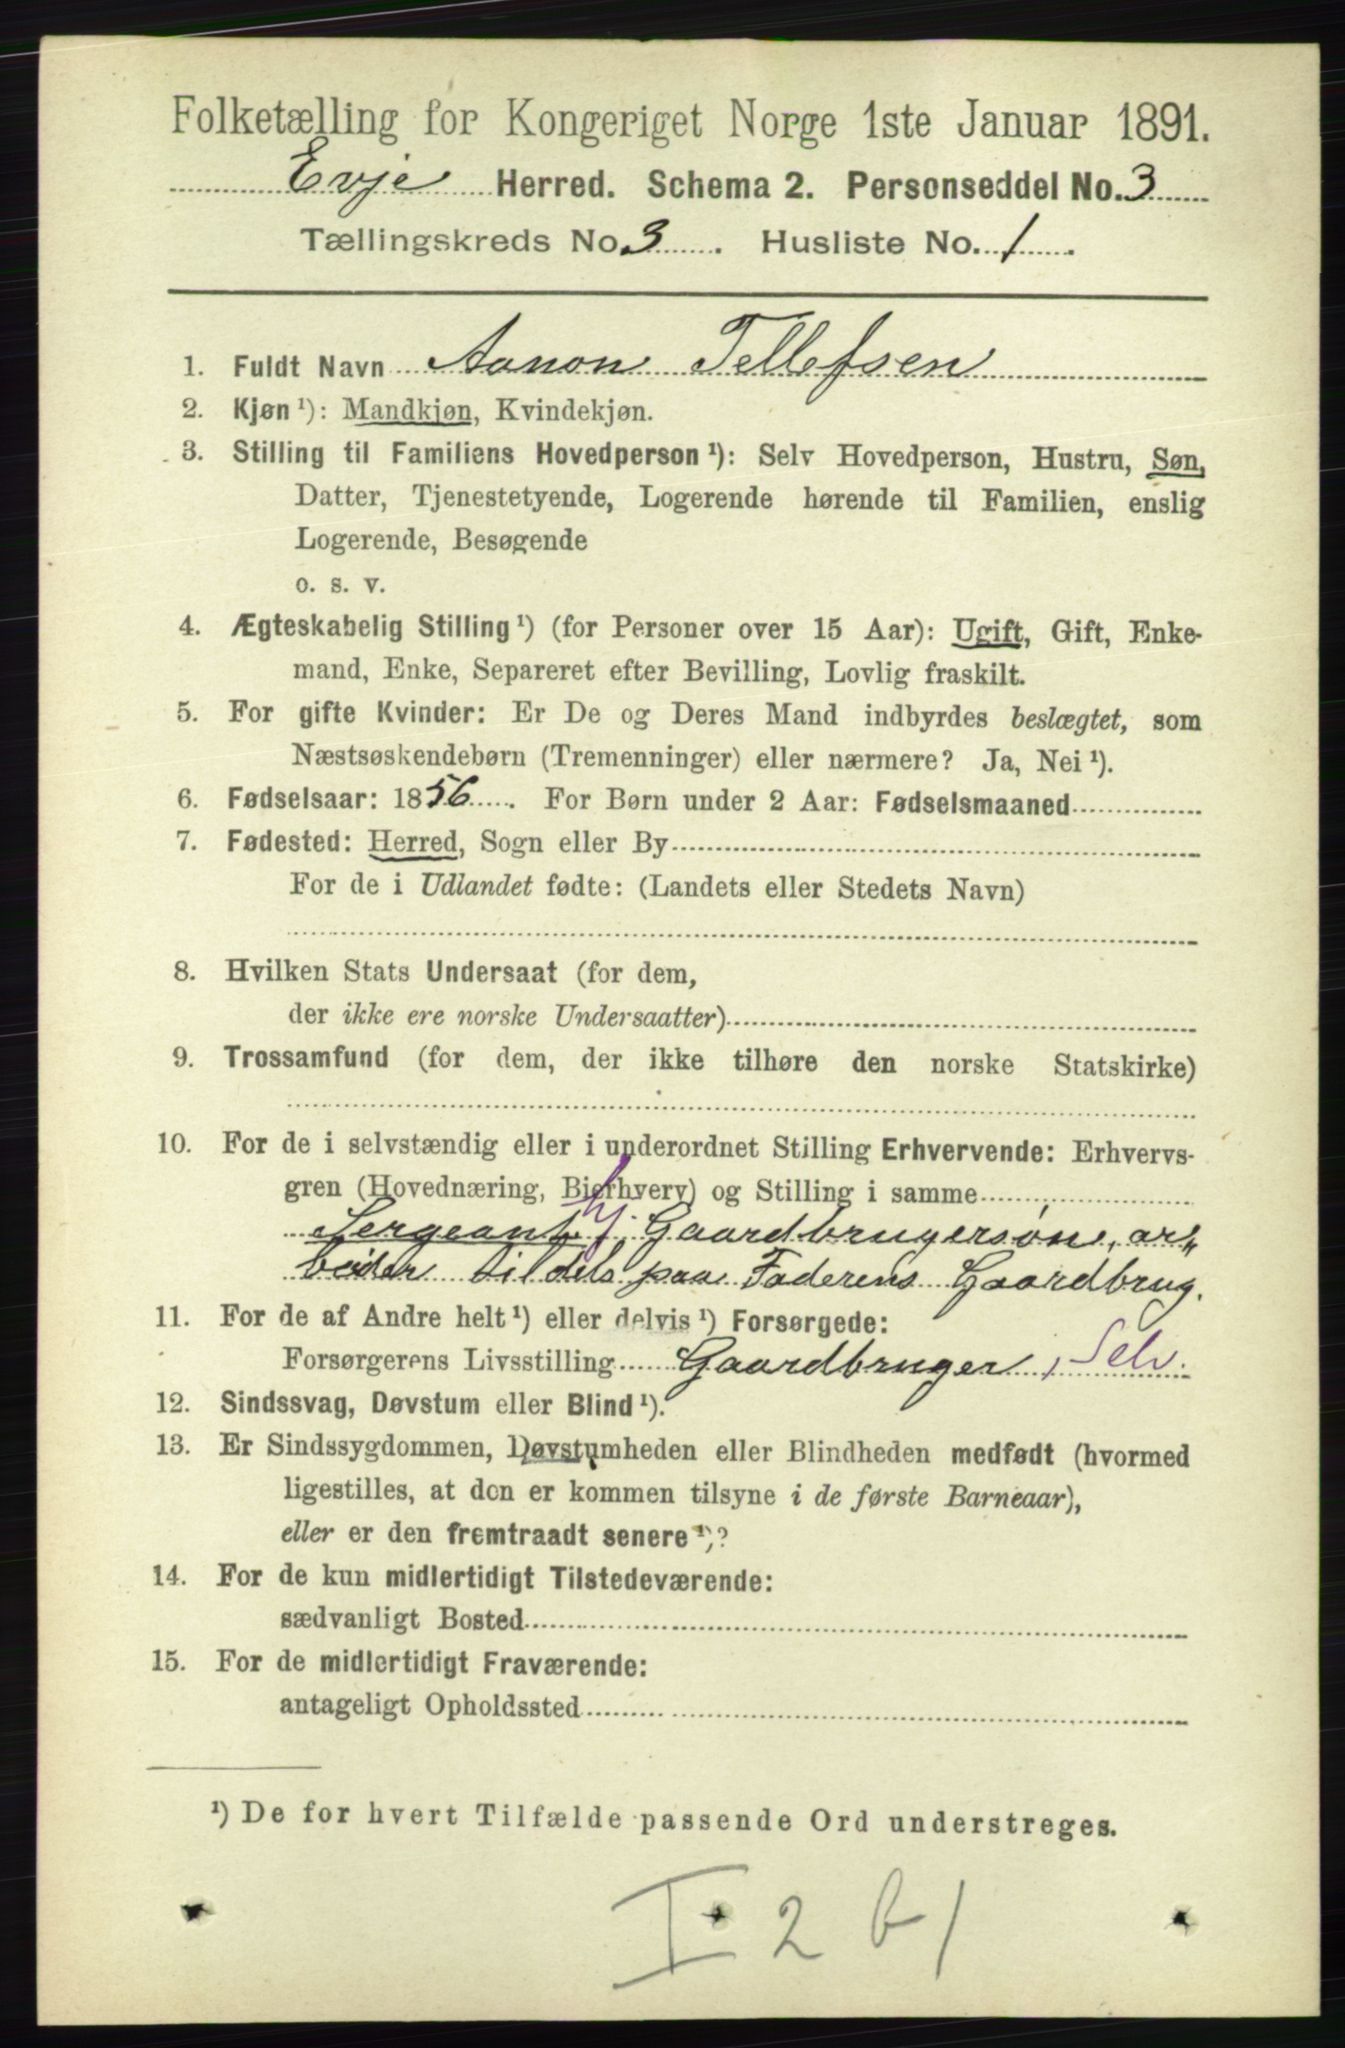 Folketælling for Kongeriget Norge 1ste Januar 1891.
Evje Herred. Schema 2. Personseddel No. 3
Tællingskreds No. 3. Husliste No. 1.
1. Fuldt Navn Aanon Tellefsen
2. Kjøn ¹): Mandkjøn, Kvindekjøn.
3. Stilling til Familiens Hovedperson ¹): Selv Hovedperson, Hustru, Søn,
Datter, Tjenestetyende, Logerende hørende til Familien, enslig
Logerende, Besøgende
o. s. v.
4. Ægteskabelig Stilling ¹) (for Personer over 15 Aar): Ugift, Gift, Enke-
mand, Enke, Separeret efter Bevilling, Lovlig fraskilt.
5. For gifte Kvinder: Er De og Deres Mand indbyrdes beslægtet, som
Næstsøskendebørn (Tremenninger) eller nærmere? Ja, Nei ¹).
6. Fødselsaar: 1856. For Børn under 2 Aar: Fødselsmaaned
7. Fødested: Herred, Sogn eller By
For de i Udlandet fødte: (Landets eller Stedets Navn)
8. Hvilken Stats Undersaat (for dem,
der ikke ere norske Undersaatter)
9. Trossamfund (for dem, der ikke tilhøre den norske Statskirke)
10. For de i selvstændig eller i underordnet Stilling Erhvervende: Erhvervs-
gren (Hovednæring, Bierhverv) og Stilling i samme
Sergeant, Gaardbrugersøn, ar„
beider tildels paa Faderens Gaardbrug.
11. For de af Andre helt ¹) eller delvis ¹) Forsørgede:
Forsørgerens Livsstilling Gaardbruger, Selv.
12. Sindssvag, Døvstum eller Blind ¹).
13. Er Sindssygdommen, Døvstumheden eller Blindheden medfødt (hvormed
ligestilles, at den er kommen tilsyne i de første Barneaar),
eller er den fremtraadt senere ¹)?
14. For de kun midlertidigt Tilstedeværende:
sædvanligt Bosted
15. For de midlertidigt Fraværende:
antageligt Opholdssted
¹) De for hvert Tilfælde passende Ord understreges.
I 2 b 1